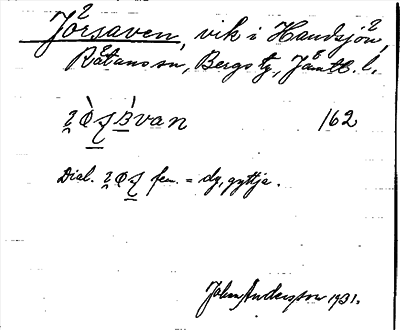 Jörsaven, vik i Handsjön,
Rätans sn, Bergs tg, Jämtl. l.
162
Dial. fem. = dy, gyttja.
John Andersson 1931.